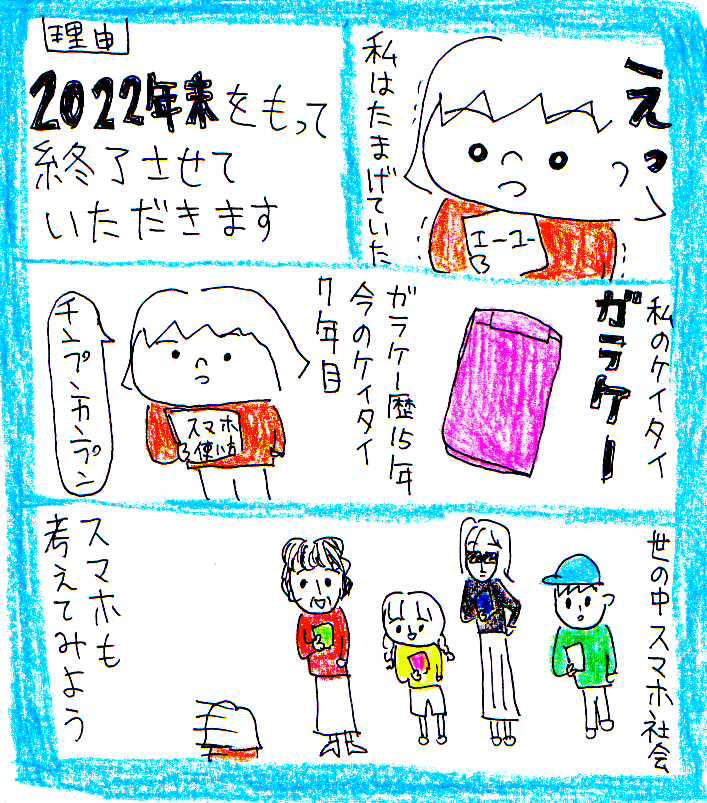 えっ
私はたまげていた
エーユー
理由
2022年末をもって
終了させて
いただきます
私のケイタイ
ガラケー
ガラケー歴15年
今のケイタイ
7年目
スマホ
使い方
チンプンカンプン
世の中スマホ社会
スマホも
考えてみよう